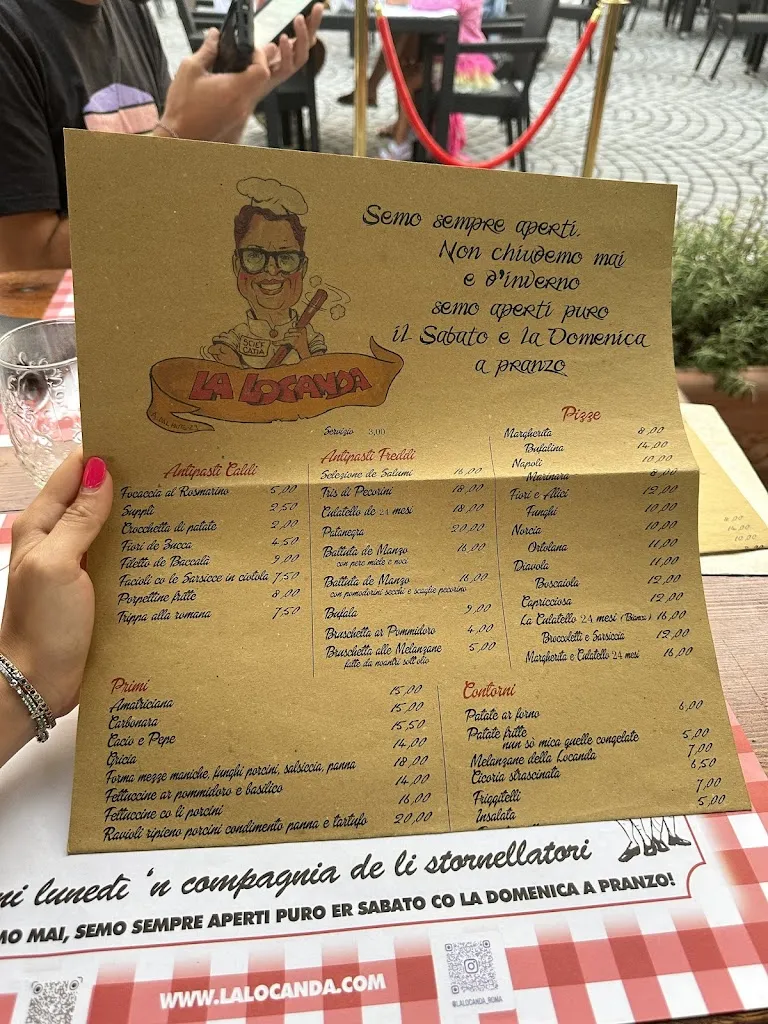 Semo sempre aperti.
Non chiudemo mai
e d'inverno
semo aperti puro
il Sabato e la Domenica
a pranzo
CHEF
CADIA
LA LOCANDA
Servizio 3,00
Antipasti Caldi
Focaccia al Rosmarino 5,00
Supplì 2,50
Crocchetta di patate 2,00
Fiori de Zucca 4,50
Filetto de Baccalà 9,00
Facioli co le Sarsicce in ciotola 7,50
Porpettine fritte 8,00
Trippa alla romana 7,50
Antipasti Freddi
Selezione de Salumi 16,00
Tris di Pecorini 18,00
Culatello de 24 mesi 18,00
Patanegra 20,00
Battuta de Manzo 16,00
con pere miele e noci
Battuta de Manzo 16,00
con pomodorini secchi e scaglie pecorino
Bufala 9,00
Bruschetta ar Pommidoro 4,00
Bruschetta alle Melanzane 5,00
fatte da noantri sott'olio
Pizze
Margherita 8,00
Bufalina 14,00
Napoli 10,00
Marinara 8,00
Fiori e Alici 12,00
Funghi 10,00
Norcia 10,00
Ortolana 11,00
Diavola 11,00
Boscaiola 12,00
Capricciosa 12,00
La Culatello 24 mesi (Bianca) 16,00
Broccoletti e Sarsiccia 12,00
Margherita e Culatello 24 mesi 16,00
Primi
Amatriciana 15,00
Carbonara 15,00
Cacio e Pepe 15,50
Gricia 14,00
Forma mezze maniche, funghi porcini, salsiccia, panna 18,00
Fettuccine ar pommidoro e basilico 14,00
Fettuccine co li porcini 16,00
Ravioli ripieno porcini condimento panna e tartufo 20,00
Contorni
Patate ar forno 6,00
Patate fritte
nun sò mica quelle congelate 5,00
Melanzane della Locanda 7,00
Cicoria strascinata 6,50
Friggitelli 7,00
Insalata 5,00
ni lunedì 'n compagnia de li stornellatori
MO MAI, SEMO SEMPRE APERTI PURO ER SABATO CO LA DOMENICA A PRANZO!
WWW.LALOCANDA.COM
@LALOCANDA_ROMA